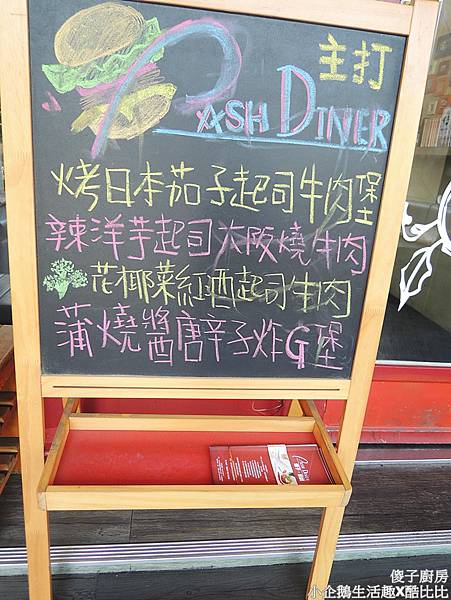 主打
PASH DINER
烤日本茄子起司牛肉堡
辣洋芋起司大阪燒牛肉
花椰菜紅酒起司牛肉
蒲燒醬唐辛子炸G堡
傻子廚房
小企鵝生活趣X酷比比